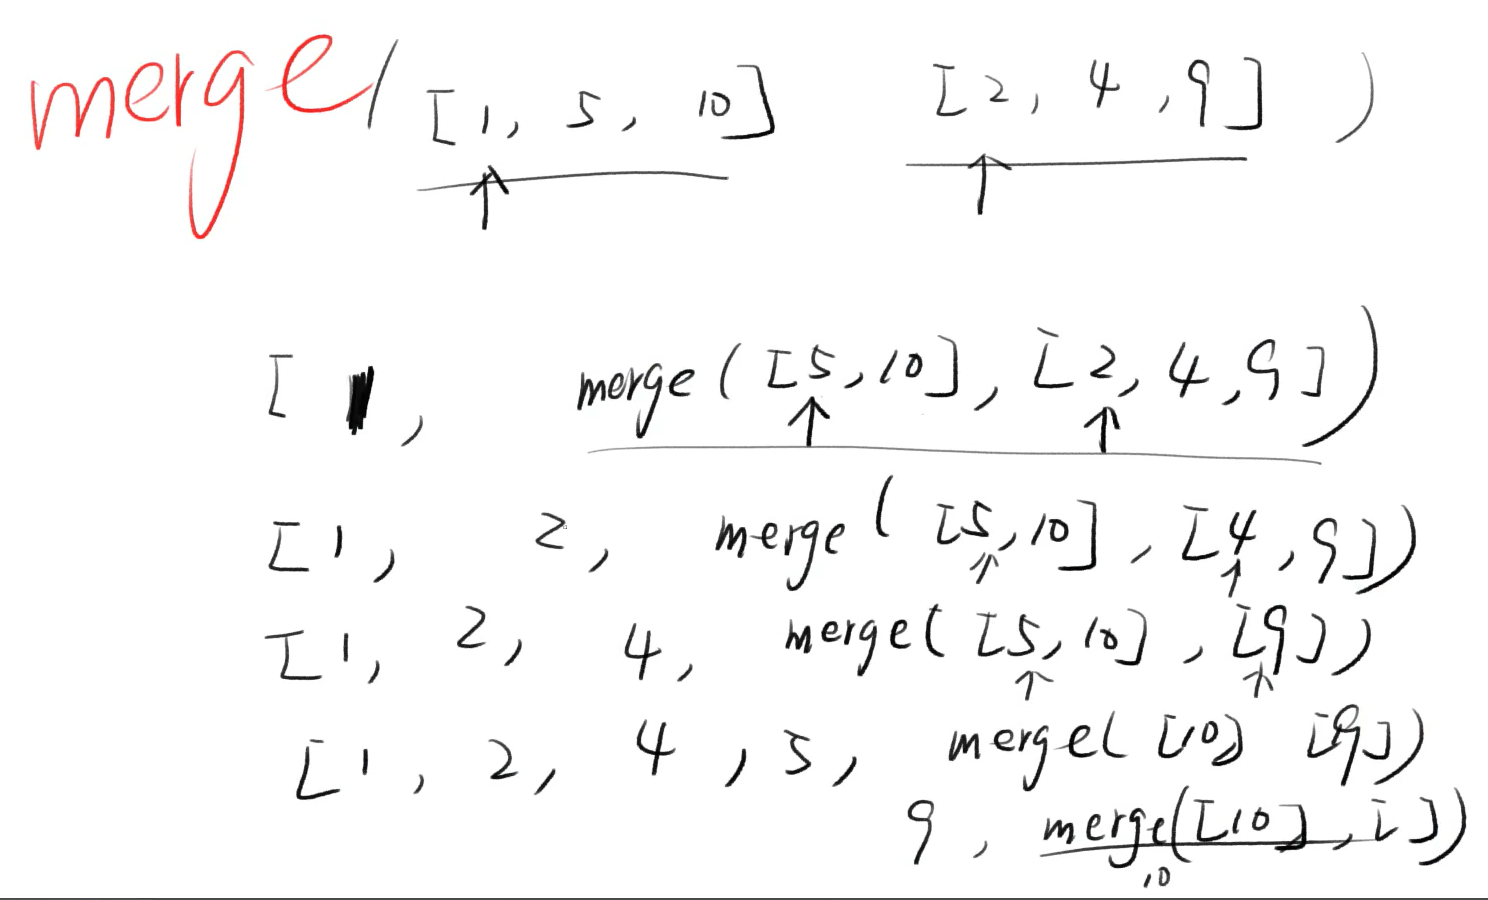 merge( [1, 5, 10] [2, 4, 9] )
[ 1, merge([5, 10], [2, 4, 9])
[1, 2, merge([5, 10], [4, 9])
[1, 2, 4, merge([5, 10], [9])
[1, 2, 4, 5, merge([10] [9])
9, merge([10], [])
10